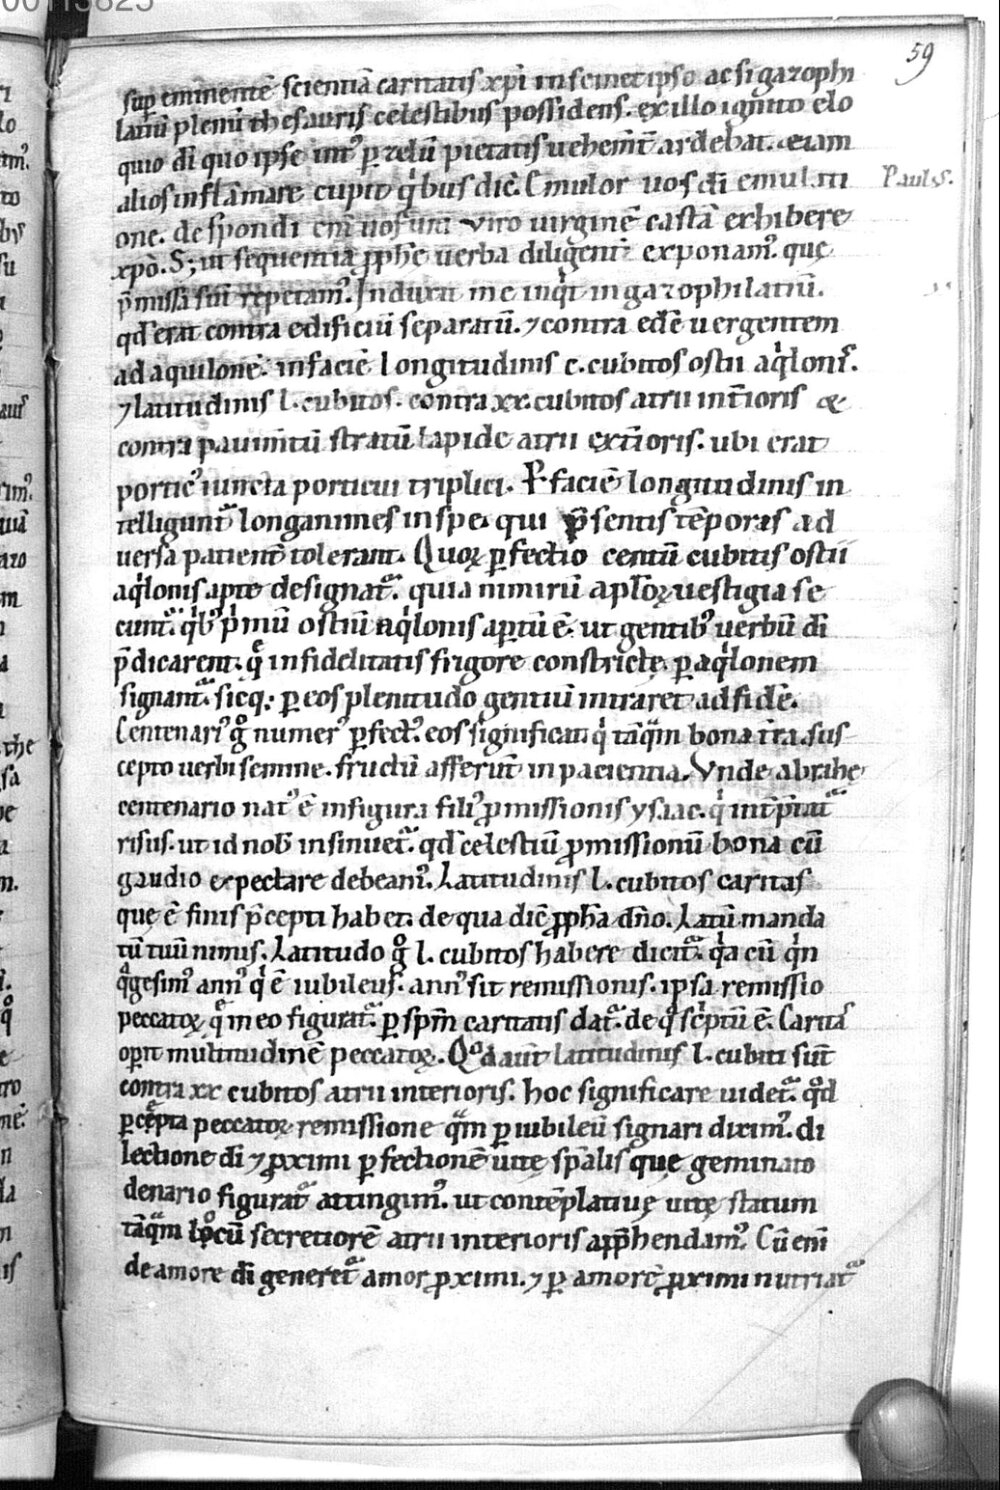 00113825
59
sup eminentē scientiā caritatis xp̄i in semet ipso ac si gazophi
latiū plenū thesauris celestibus possidens. ex illo ignito elo
quio dī quo ipse intꝰ ꝑ zelū pietatis uehem̄t̄ ardebat. etiam
alios inflāmare cupit qͥbus dic̄. Emulor uos dī emulati
Paulꝰ.
one. despondi enī uos uni viro uirginē castā exhibere
xp̄o. S; ut sequentia ꝓph̄e uerba diligent᷑ exponamꝰ. quę
p̄missa sūt repetamꝰ. Induxit me inqͥt in gazophilatiū.
qd̄ erat contra edificiū separatū. ⁊ contra edē uergentem
ad aquilonē. in faciē longitudinis c. cubitos ostii aqͥlonis.
⁊ latitudinis l. cubitos. contra xx. cubitos atrii int̄ioris &
contra pauim̄tū stratū lapide atrii ext̄ioris. ubi erat
porticꝰ iuncta porticui triplici. Ꝑ faciē longitudinis in
telligunt᷑ longanimes in spe. qui p̄sentis tēporis ad
uersa patient̄ tolerant. Quoꝝ ꝑfectio centū cubitis ostii
aqͥlonis apte designat᷑. quia nimirū apl̄oꝝ uestigia se
cunt᷑. qͥbꝰ pͥmū ostiū aqͥlonis aptū ē. ut gentibꝰ uerbū dī
p̄dicarent. q̄ infidelitatis frigore constrictę. ꝑ aqͥlonem
signant᷑. sicq; ꝑ eos plenitudo gentiū intraret ad fidē.
Centenariꝰ gͦ numerꝰ ꝑfectꝰ. eos significat qͥ tāqͣm bona t̄ra sus
cepto uerbi semine. fructū afferūt in pacientia. Vnde abrahę
centenario natꝰ ē in figura filiꝰ ꝓmissionis ysaac. qͥ int̄p̄tat᷑
risus. ut id nob̄ insinuet᷑. qd̄ celestiū ꝓmissionū bona cū
gaudio expectare debeamꝰ. Latitudinis l. cubitos caritas
que ē finis p̄cepti habet. de qua dic̄ ꝓph̄a dn̄o. Latū manda
tū tuū nimis. Latitudo gͦ l. cubitos habere dicit᷑. qͥa cū qͥn
qͣgesimꝰ annꝰ qͥ ē iubileus. annꝰ sit remissionis. ipsa remissio
peccatoꝝ q̄ in eo figurat᷑. ꝑ sp̄m caritatis dat᷑. de qͣ scͥptū ē. Caritas
operit multitudinē peccatoꝝ. Qͦd aut̄ latitudinis l. cubiti sūt
contra xx cubitos atrii interioris. hoc significare uidet᷑. qͦd
ꝑcepta peccatoꝝ remissione qͣm ꝑ iubileū signari diximꝰ. di
lectione dī ⁊ ꝓximi ꝑfectionē uitę sp̄alis quę geminato
denario figurat᷑ attingimꝰ. ut contēplatiuę uitę statum
tāqͣm locū secretiorē atrii interioris app̄hendamꝰ. Cū enī
de amore dī generet᷑ amor ꝓximi. ⁊ ꝑ amorē ꝓximi nutriat᷑